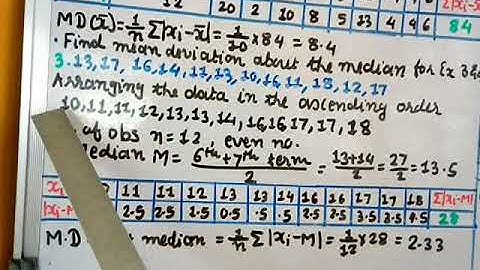 12 20 2 10 8 5 13 6 4 84
MD(x̄)=1/n Σ|xi-x̄|=1/10×84=8.4
• Find mean deviation about the median for Ex
3.13,17, 16,14,11,13,10,16,11,18,12,17
Arranging the data in the ascending order
10,11,11,12,13,13,14,16,16,17,17,18
of obs n=12, even no.
Median M= 6th+7th term/2 = 13+14/2 = 27/2 = 13.5
xi 11 11 12 13 13 14 16 16 17 17 18 Σ|xi-M|
|xi-M| 2.5 2.5 1.5 0.5 .5 .5 2.5 2.5 3.5 3.5 4.5 28
M.D median = 1/n Σ|xi-M|= 1/12×28 = 2.33